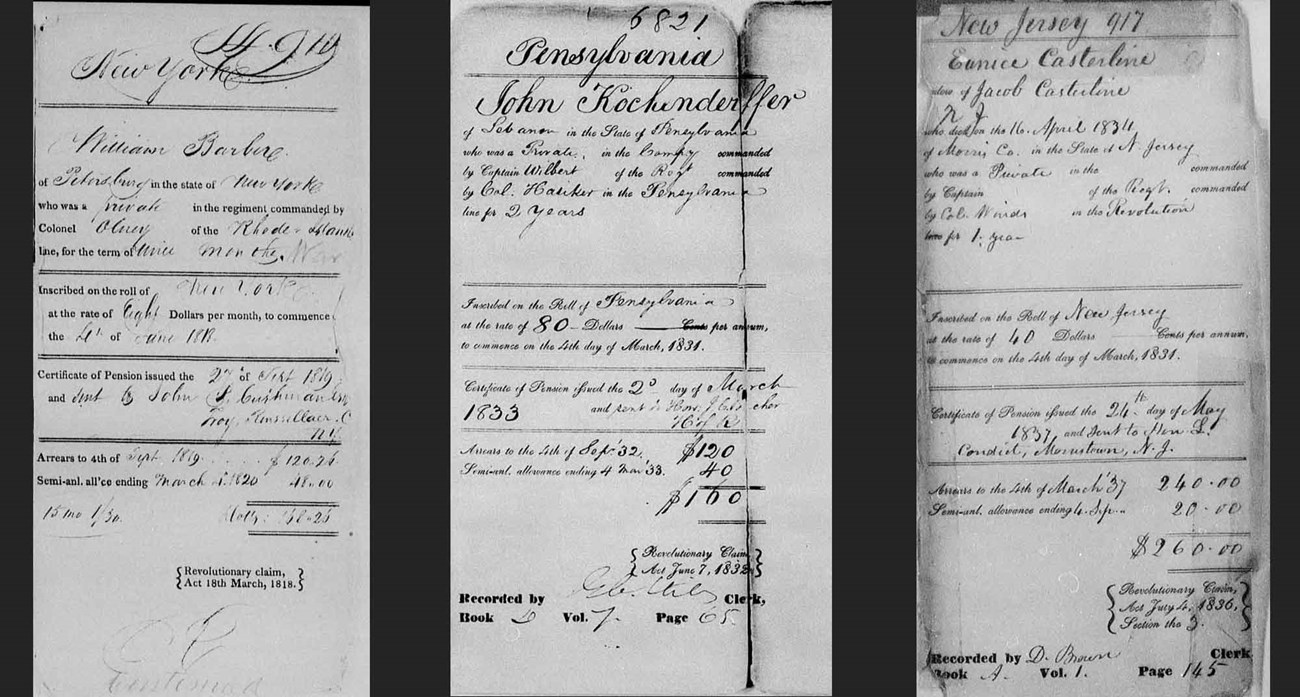 14.914
New York
William Barber.
of Petersburg in the state of New York
who was a private in the regiment commanded by
Colonel Olney of the Rhode Island
line, for the term of
Inscribed on the roll of New York
at the rate of Eight Dollars per month, to commence
the 4th of June 1818.
Certificate of Pension issued the of Sept 1819
and sent to John Cushman
Troy,
N.Y.
Arrears to 4th of Sept 1819 $ 120.26
Semi-anl. all'ce ending March 4. 1820 48.00
15 mo 1/30
{Revolutionary claim,
Act 18th March, 1818.}
6821
Pensylvania
John Kochenderffer
of Lebanon in the State of Pensylvania
who was a Private. in the Compy commanded
by Captain Wilbert of the Regt commanded
by Col. in the Pensylvania
line for 2 years
Inscribed on the Roll of Pensylvania
at the rate of 80 Dollars Cents per annum,
to commence on the 4th day of March, 1831.
Certificate of Pension issued the 2d day of March
1833 and sent to Hon. J.
H of R
Arrears to the 4th of Sept. 32. $120
Semi-anl. allowance ending 4 Mar 33. 40
$160
{Revolutionary Claim
Act June 7, 1832}
Recorded by Clerk,
Book D Vol. 7. Page 65
New Jersey 917
Eunice Casterline
widow of Jacob Casterline
who died on the 16. April 1834
of Morris Co. in the State of N. Jersey
who was a Private in the commanded
by Captain of the Regt. commanded
by Col. Winds in the Revolution
line for 1. year
Inscribed on the Roll of New Jersey
at the rate of 40 Dollars Cents per annum,
to commence on the 4th day of March, 1831.
Certificate of Pension issued the 24th day of May
1837, and sent to Hon. L.
Condict, Morristown, N. J.
Arrears to the 4th of March '37 240.00
Semi-anl. allowance ending 4. Sep. " 20.00
$260.00
{Revolutionary Claim,
Act July 4, 1836,
Section the 3.}
Recorded by D. Brown Clerk
Book A. Vol. 1. Page 145